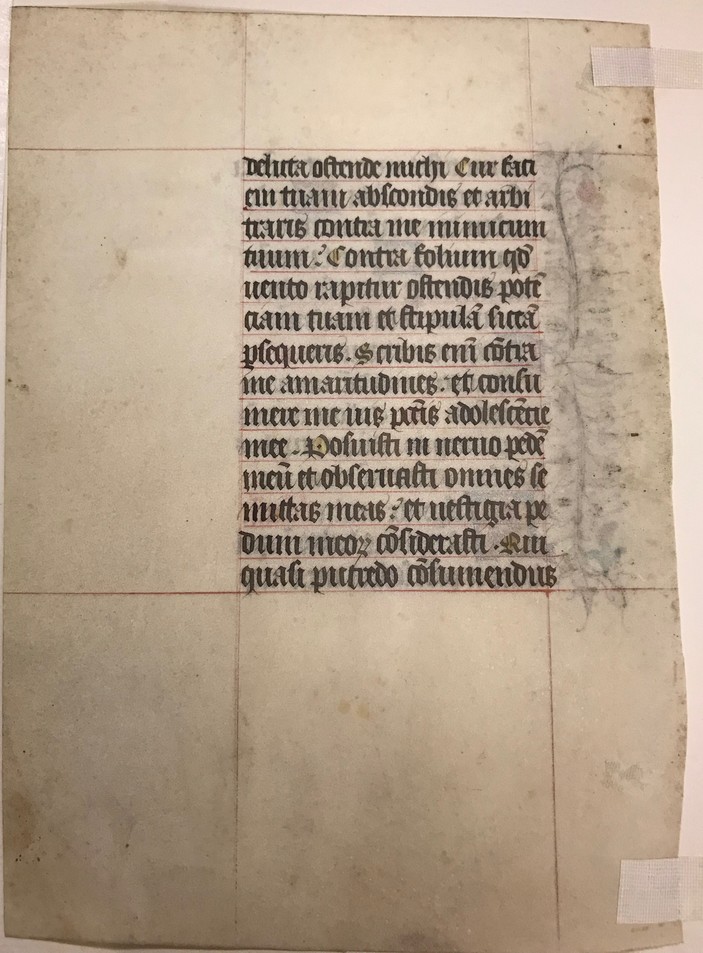 delicta ostende michi Cur faci
em tuam abscondis et arbi
traris contra me inimicum
tuum? Contra folium qd̄
uento rapitur ostendis potē
ciam tuam et stipulā siccā
ꝑsequeris. Scribis enī cōtra
me amaritudines: et consu
mere me uis pctīs adolescēcie
mee. Posuisti in neruo pedē
meū et obseruasti omnes se
mitas meas: et uestigia pe
dum meoꝝ cōsiderasti. Qui
quasi putredo cōsumendus